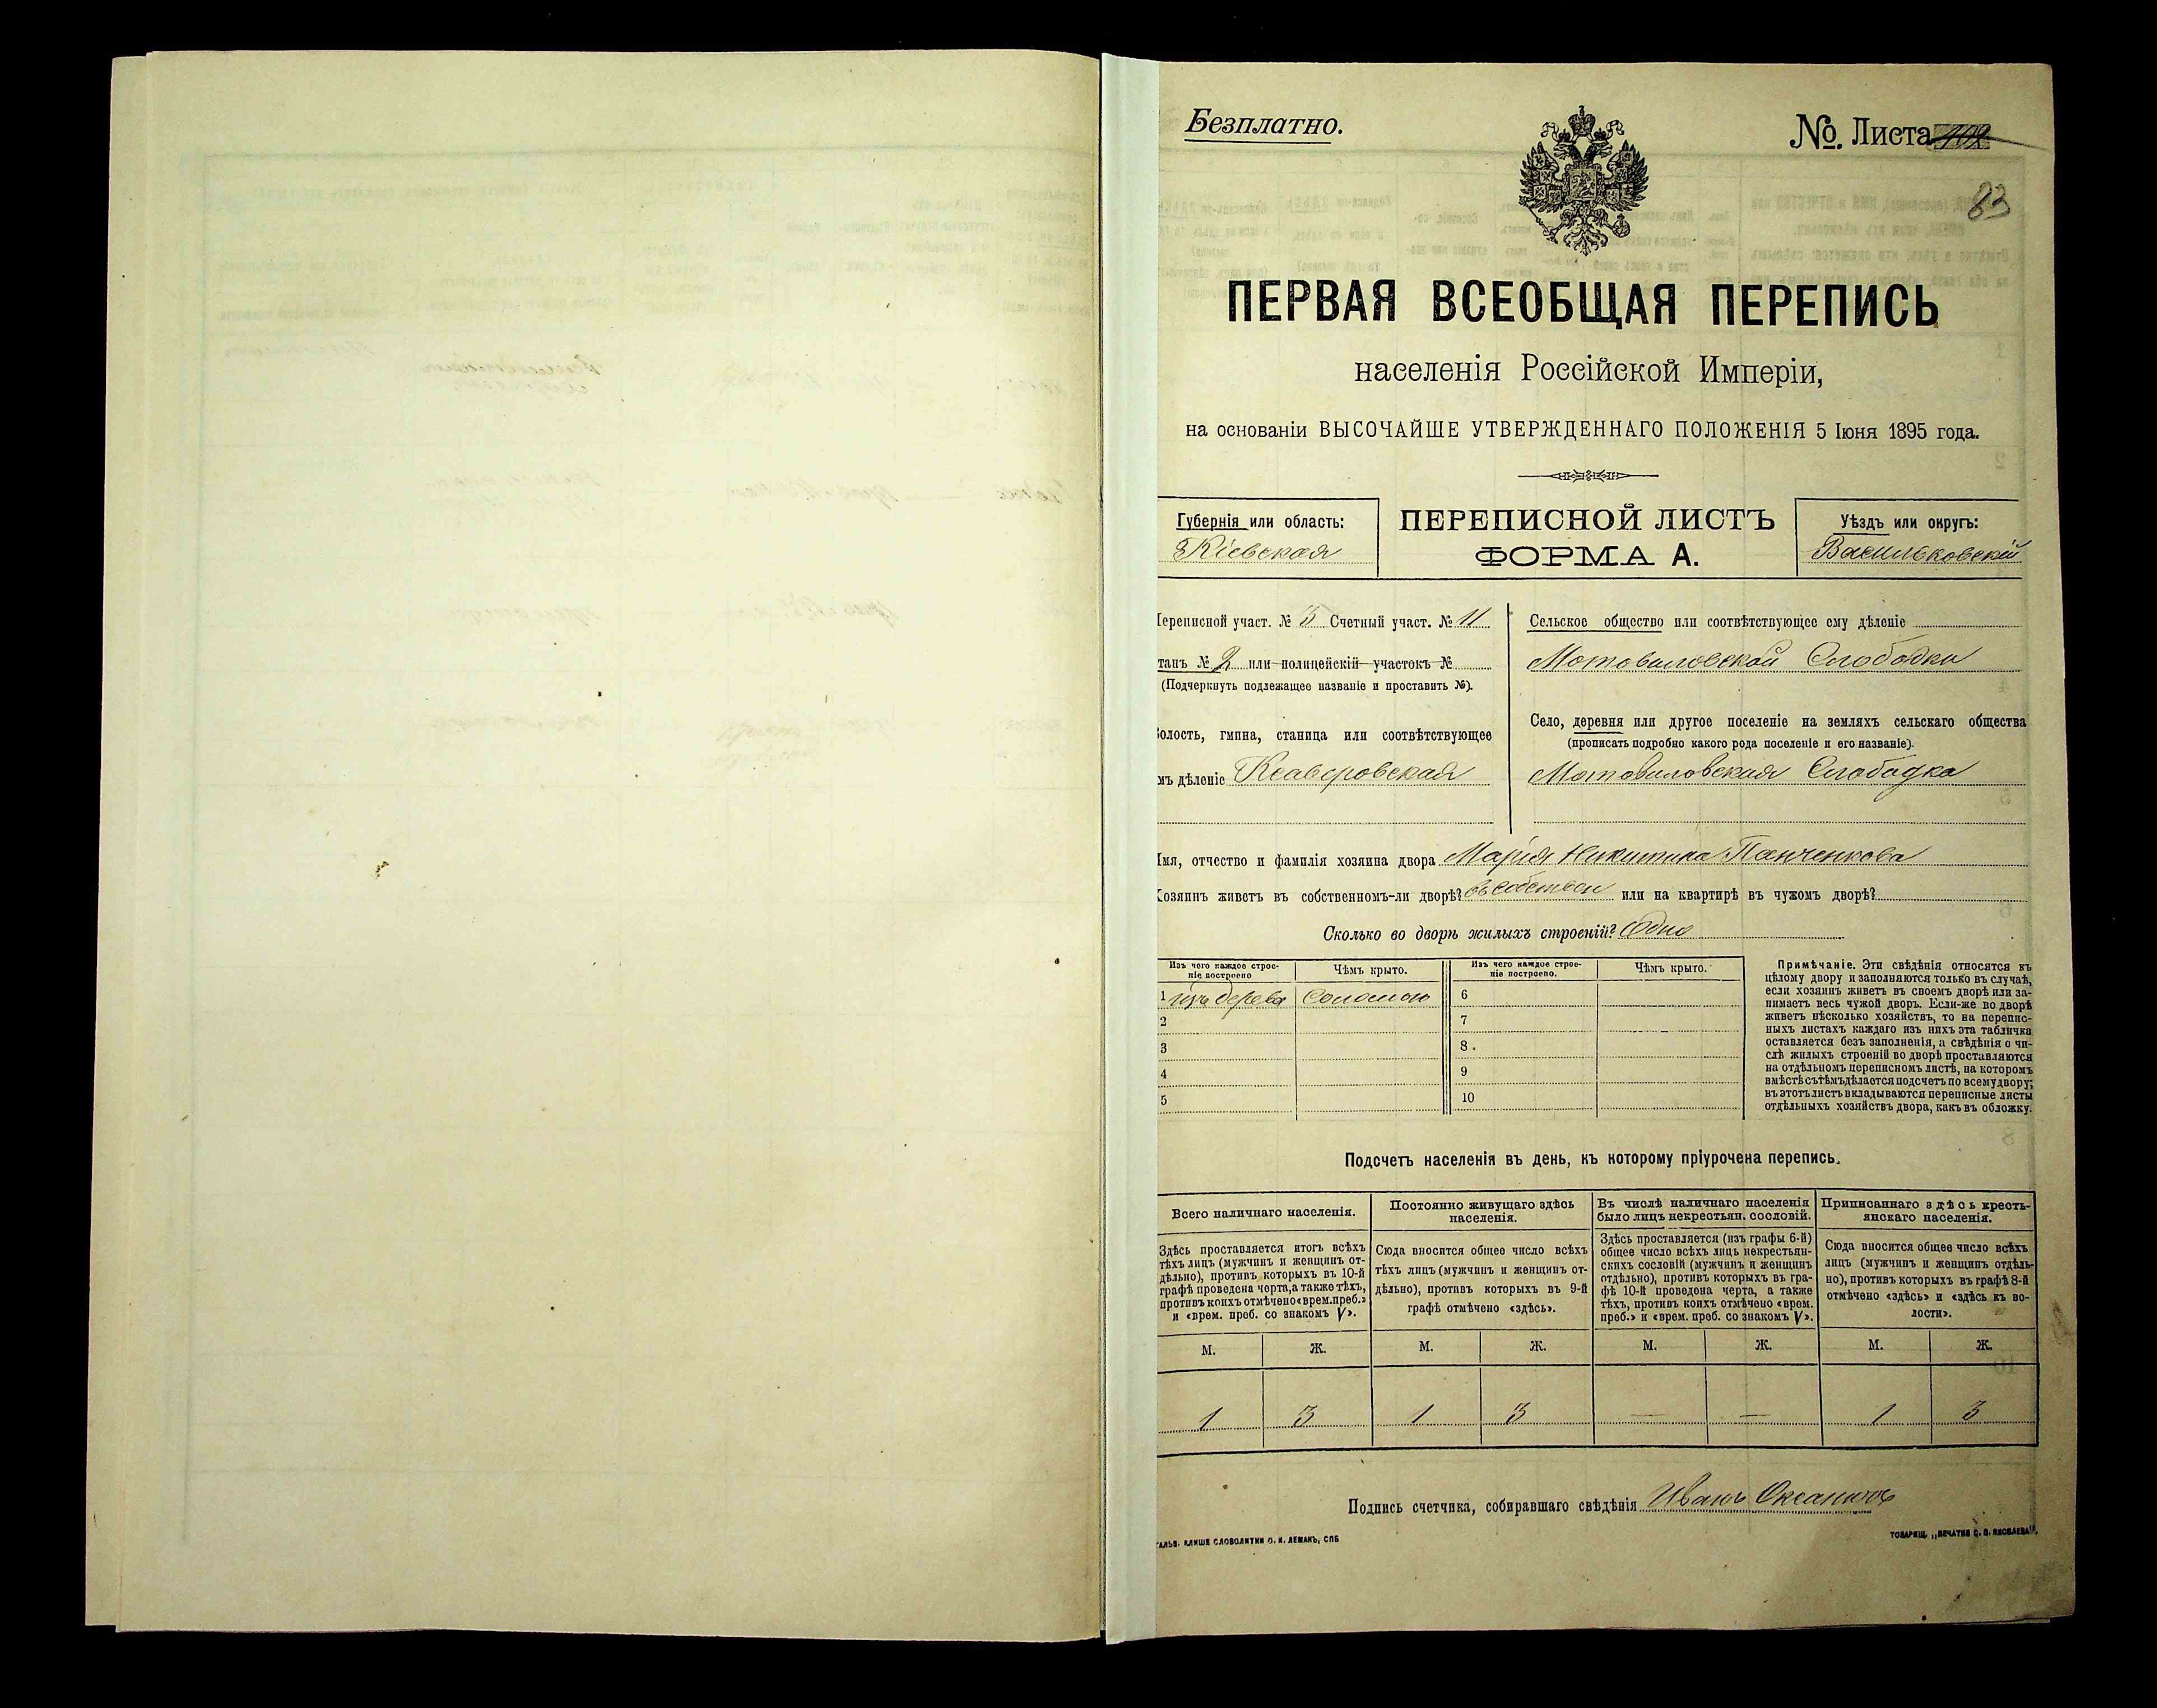 Безплатно.
№. Листа 102
83
ПЕРВАЯ ВСЕОБЩАЯ ПЕРЕПИСЬ
населенія Россійской Имперіи,
на основаніи ВЫСОЧАЙШЕ УТВЕРЖДЕННАГО ПОЛОЖЕНІЯ 5 Іюня 1895 года.
Губернія или область:
Кіевская
ПЕРЕПИСНОЙ ЛИСТЪ
ФОРМА А.
Уѣздъ или округъ:
Васильковскій
Переписной участ. № 3 Счетный участ. № 11
танъ № 2 или полицейскій участокъ №
(Подчеркнуть подлежащее названіе и проставить №).
олость, гмина, станица или соотвѣтствующее
мъ дѣленіе Ксаверовская
Сельское общество или соотвѣтствующее ему дѣленіе
Мотовиловской Слободки
Село, деревня или другое поселеніе на земляхъ сельскаго общества
(прописать подробно какого рода поселеніе и его названіе).
Мотовиловская Слободка
Имя, отчество и фамилія хозяина двора Марія Никитина Панченкова
Хозяинъ живетъ въ собственномъ-ли дворѣ? въ собствен или на квартирѣ въ чужомъ дворѣ?
Сколько во дворѣ жилыхъ строеній? Одно
Изъ чего каждое строеніе построено
Чѣмъ крыто.
Изъ чего каждое строеніе построено.
Чѣмъ крыто.
1 изъ дерева Соломою 6
2 7
3 8.
4 9
5 10
Примѣчаніе. Эти свѣдѣнія относятся къ
цѣлому двору и заполняются только въ случаѣ,
если хозяинъ живетъ въ своемъ дворѣ или за-
нимаетъ весь чужой дворъ. Если-же во дворѣ
живетъ нѣсколько хозяйствъ, то на перепис-
ныхъ листахъ каждаго изъ нихъ эта табличка
оставляется безъ заполненія, а свѣдѣнія о чи-
слѣ жилыхъ строеній во дворѣ проставляются
на отдѣльномъ переписномъ листѣ, на которомъ
вмѣстѣ съ тѣмъ дѣлается подсчетъ по всему двору;
въ этотъ листъ вкладываются переписные листы
отдѣльныхъ хозяйствъ двора, какъ въ обложку.
Подсчетъ населенія въ день, къ которому пріурочена перепись.
Всего наличнаго населенія.
Постоянно живущаго здѣсь
населенія.
Въ числѣ наличнаго населенія
было лицъ некрестьян. сословій.
Приписаннаго здѣсь кресть-
янскаго населенія.
Здѣсь проставляется итогъ всѣхъ
тѣхъ лицъ (мужчинъ и женщинъ от-
дѣльно), противъ которыхъ въ 10-й
графѣ проведена черта, а также тѣхъ,
противъ коихъ отмѣчено «врем. преб.»
и «врем. преб. со знакомъ V».
Сюда вносится общее число всѣхъ
тѣхъ лицъ (мужчинъ и женщинъ от-
дѣльно), противъ которыхъ въ 9-й
графѣ отмѣчено «здѣсь».
Здѣсь проставляется (изъ графы 6-й)
общее число всѣхъ лицъ некрестьян-
скихъ сословій (мужчинъ и женщинъ
отдѣльно), противъ которыхъ въ гра-
фѣ 10-й проведена черта, а также
тѣхъ, противъ коихъ отмѣчено «врем.
преб.» и «врем. преб. со знакомъ V».
Сюда вносится общее число всѣхъ
лицъ (мужчинъ и женщинъ отдѣль-
но), противъ которыхъ въ графѣ 8-й
отмѣчено «здѣсь» и «здѣсь къ во-
лости».
М. Ж. М. Ж. М. Ж. М. Ж.
1 3 1 3 — — 1 3
Подпись счетчика, собиравшаго свѣдѣнія Иванъ
КЛИШЕ СЛОВОЛИТНИ О. И. ЛЕМАНЪ, СПБ
ТОВАРИЩ. „ПЕЧАТНЯ С. П. ЯКОВЛЕВА".